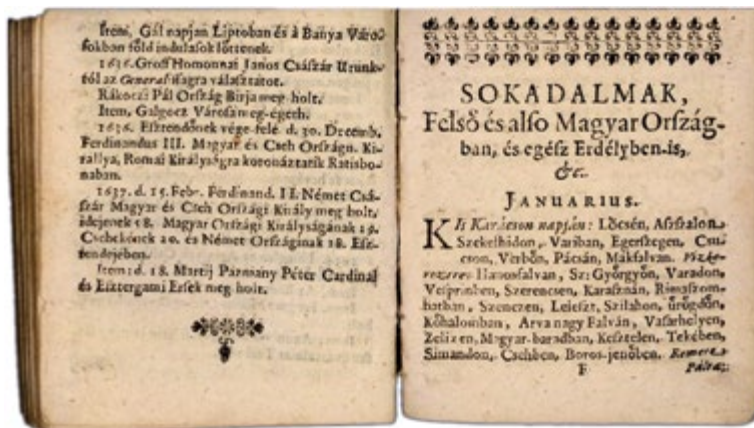 Item, Gál napjan Liptoban és à Banya Váro-
sokban föld indulasok löttenek.
1636. Groff Homonnai Janos Császár Urunk-
tól az Generalissagra választatot.
Rákoczi Pál Ország Birja meg holt.
Item, Galgocz Városa meg-égeth.
1636. Esztendönek vége felé. d. 30. Decemb.
Ferdinandus III. Magyar és Cseh Országn. Ki-
rallya, Romai Királyságra koronáztatik Ratisbo-
naban.
1637. d. 15. Febr. Ferdinand. II. Német Csá-
szár Magyar és Cseh Országi Király meg holt,
idejenek 58. Magyar Országi Királyságának 19.
Csehekének 20. és Német Országinak 18. Esz-
tendejében.
Item: d. 18. Martij Pazmany Péter Cardinal
és Esztergami Ersek meg holt.
SOKADALMAK,
Felső és also Magyar Ország-
ban, és egész Erdélyben-is,
&c.
JANUARIUS.
KIs Karácson napján: Löcsén, Aszszalon,
Szekelhidon, Variban, Egerszegen, Csu-
cson, Verbőn, Pácsán, Mákfalvan. Vizke-
reszter: Hanosfalvan, Sz: Györgyön, Varadon,
Vesprinben, Szerencsen, Karasznán, Rimaszom-
hatban, Szenczen, Leleszt, Szilahon, ürögdön,
Köhalomban, Arva nagy Falván, Vasarhelyen,
Zelizen, Magyar-baradban, Kesztelen, Tekében,
Simandon, Csehben, Boros-jenöben. Remete
F Pálra: